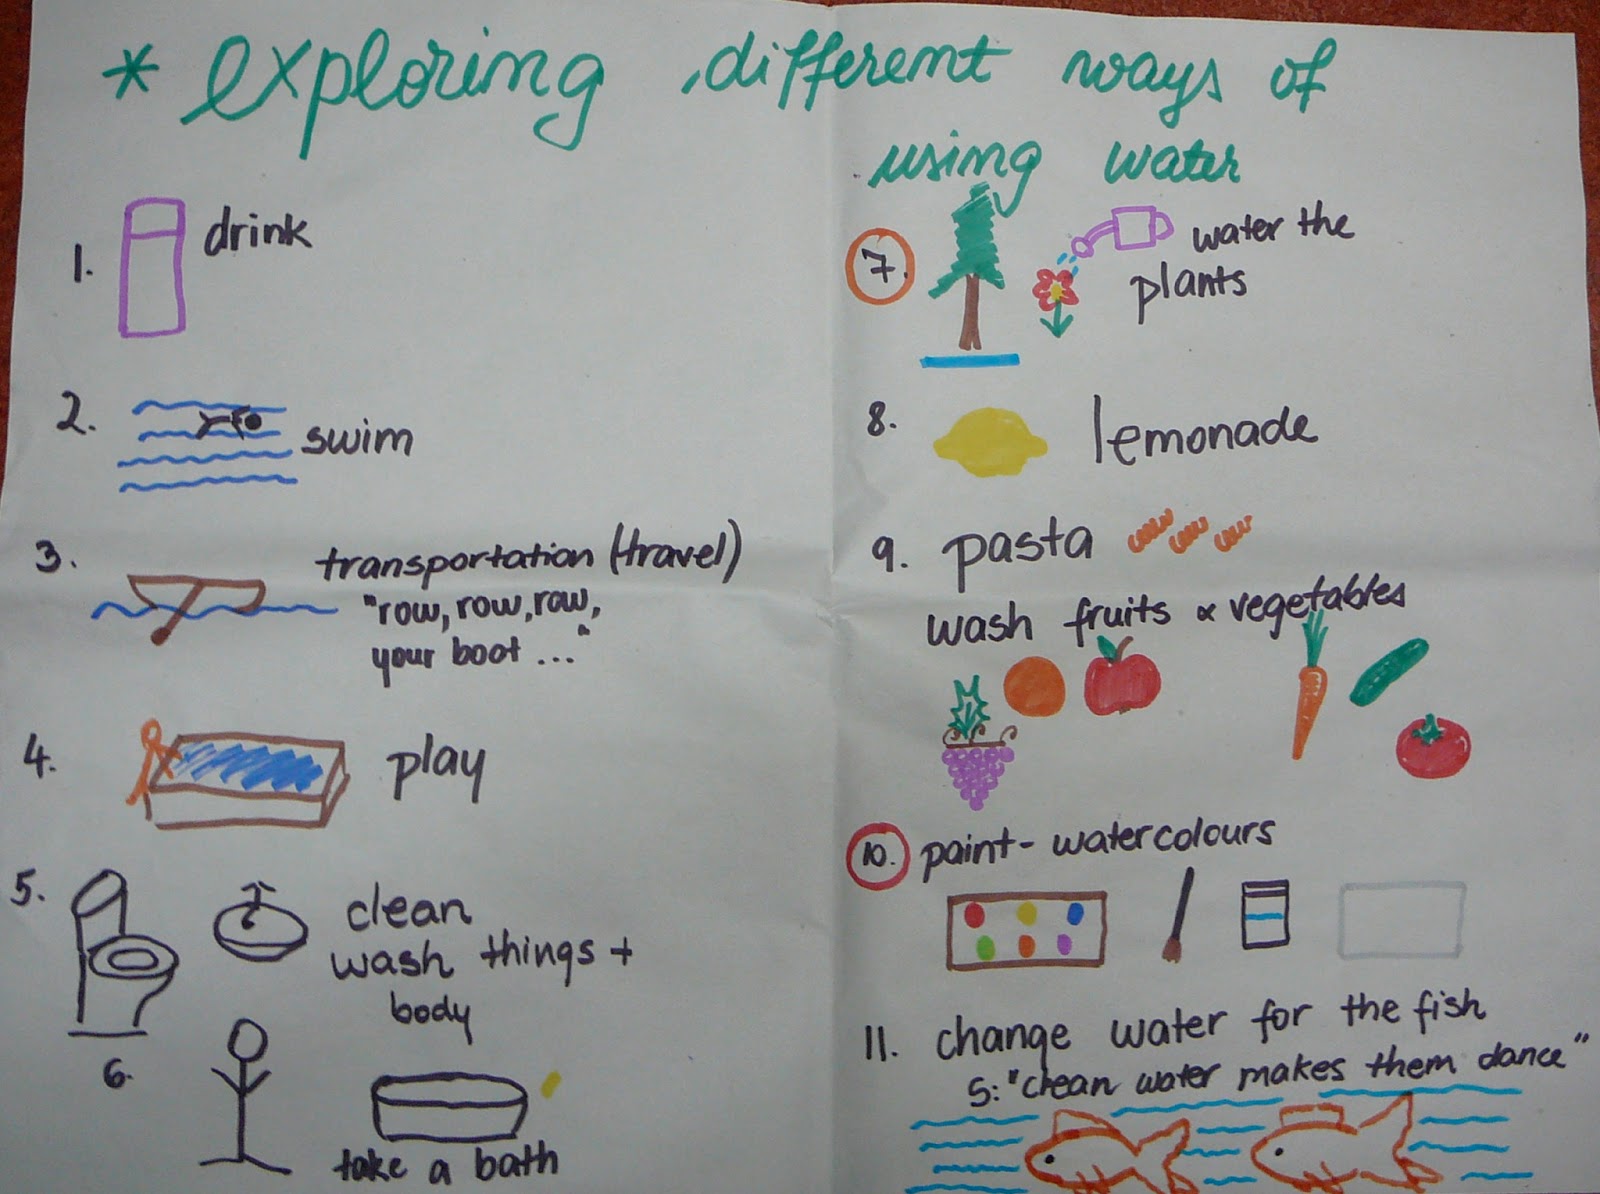 * exploring different ways of
using water
1. drink
2. swim
3. transportation (travel)
"row, row, row,
your boat ..."
4. play
5. clean
wash things +
body
6.
take a bath
7. water the
plants
8. lemonade
9. pasta
wash fruits & vegetables
10. paint - watercolours
11. change water for the fish
S: "clean water makes them dance"